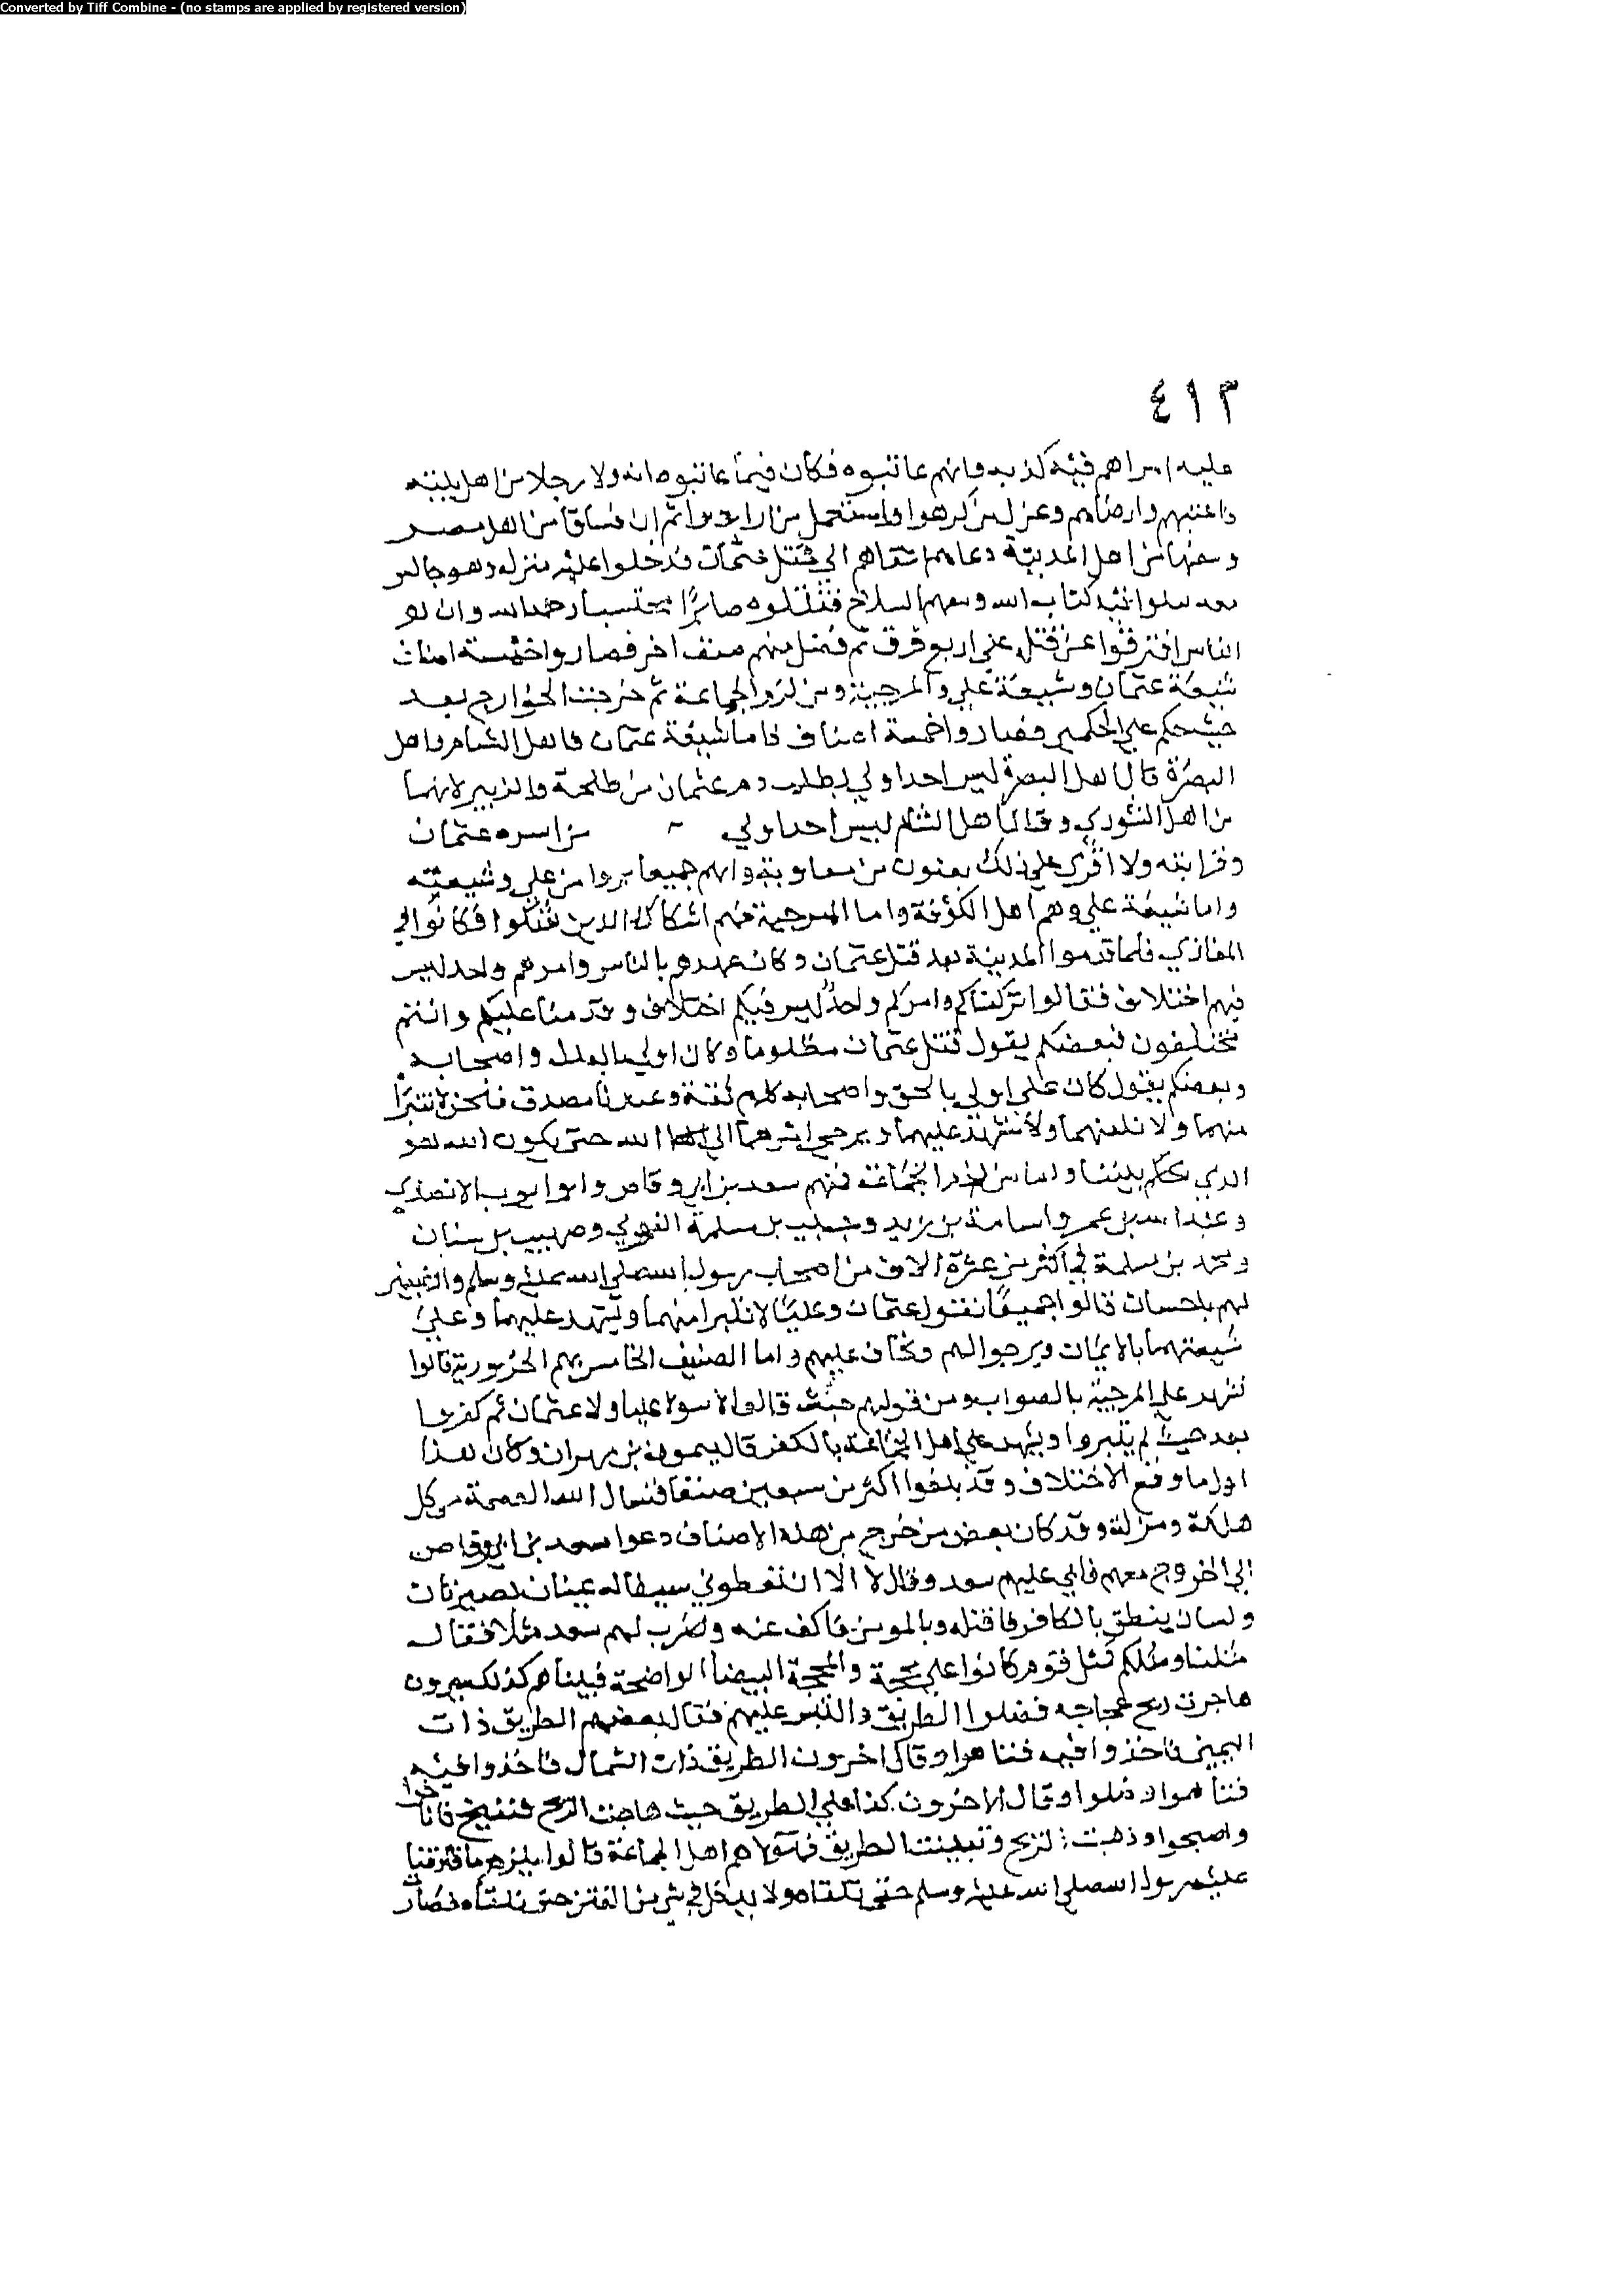 Converted by Tiff Combine - (no stamps are applied by registered version)
٤١٣
عليه امراهم فيه كذبه وانهم عاتبوه فكان فيما عاتبوه انه ولا رجلا من اهل بيته
فاعتبهم وارضاهم وعزل من كرهوا واستعمل من ارادوا ثم ان فساقا من اهل مصر
وسفها من اهل المدينة دعاهم اشقاهم الى قتل عثمان فدخلوا عليه منزله وهو جالس
معه كتاب الله ومعهم السلاح فقتلوه صابرا محتسبا رحمه الله وان
الناس افترقوا عن قتله على اربع فرق ثم فصل منهم صنف اخر فصاروا خمسة اصناف
شيعة عثمان وشيعة علي والمرجية ومن لزم الجماعة ثم خرجت الخوارج بعد
حيث حكم علي الحكمين فصاروا خمسة اصناف فاما شيعة عثمان فاهل الشام واهل
البصرة قال اهل البصرة ليس احد اولى بطلب دم عثمان من طلحة والزبير لانهما
من اهل الشوري وقال اهل الشام ليس احد اولي من اسره عثمان
وقرابته ولا اقوى على ذلك يعنون من معاوية وانهم جميعا بروا من علي وشيعته
واما شيعة علي وهم اهل الكوفة واما المرجية فهم الشكاك الذين شكوا فكانوا في
المغازي فلما قدموا المدينة بعد قتل عثمان وكان عهدهم بالناس وامرهم واحد ليس
فيهم اختلاف فقالوا تركناكم وامركم واحد ليس فيكم اختلاف وقدمنا عليكم وانتم
تختلفون فبعضكم يقول قتل عثمان مظلوما وكان اولي بالعدل واصحابه
وبعضكم يقول كان علي اولي بالحق واصحابه كلهم ثقة وعندنا مصدق فنحن لا نتبرا
منهما ولا نلعنهما ولا نشهد عليهما ويرجي امرهما الى الله حتى يكون الله هو
الذي يحكم بينهما واما من لزم الجماعة فمنهم سعد بن ابي وقاص وابو ايوب الانصاري
وعبد الله بن عمر واسامة بن زيد وحبيب بن مسلمة الفهري وصهيب بن سنان
ومحمد بن مسلمة في اكثر من عشرة الاف من اصحاب رسول الله صلى الله عليه وسلم والتابعين
لهم باحسان قالوا جميعا نتولى عثمان وعليا لا نتبرا منهما ونشهد عليهما وعلى
شيعتهما بالايمان ويرجوا لهم ونخاف عليهم واما الصنف الخامس فهم الحرورية قالوا
نشهد على المرجية بالصواب ومن قولهم حيث قالوا لا نتولا عليا ولا عثمان ثم كفروا
بعد حيث لم يتبروا ونشهد على اهل الجماعة بالكفر قال ميمون بن مهران وكان هذا
اول ما وقع الاختلاف وقد بلغوا اكثر من سبعين صنفا فنسال الله العصمة من كل
هلكة ومزلة وقد كان بعض من خرج من هذه الاصناف دعوا سعد بن ابي وقاص
الى الخروج معهم فابي عليهم سعد وقال لا الا ان تعطوني سيفا له عينان بصيرتان
ولسان ينطق بالكافر فاقتله وبالمومن فاكف عنه وضرب لهم سعد مثلا فقال
مثلنا ومثلكم كمثل قوم كانوا على محجة والمحجة البيضا الواضحة فبينا هم كذلك يسيرون
هاجرت ريح عجاجه فضلوا الطريق والتبس عليهم فقال بعضهم الطريق ذات
اليمين فاخذوا فيه فتاهوا وقال اخرون الطريق ذات الشمال فاخذوا فيه
فتاهوا وضلوا وقال الاخرون كنا على الطريق حيث هاجت الريح فننيخ فاناخوا
واصبحوا وذهبت الريح وتبينت الطريق فهولاء هم اهل الجماعة قالوا نلزم ما فارقنا
عليه رسول الله صلى الله عليه وسلم حتى نلقاه ولا ندخل في شي من الفتن حتى نلقاه فصار